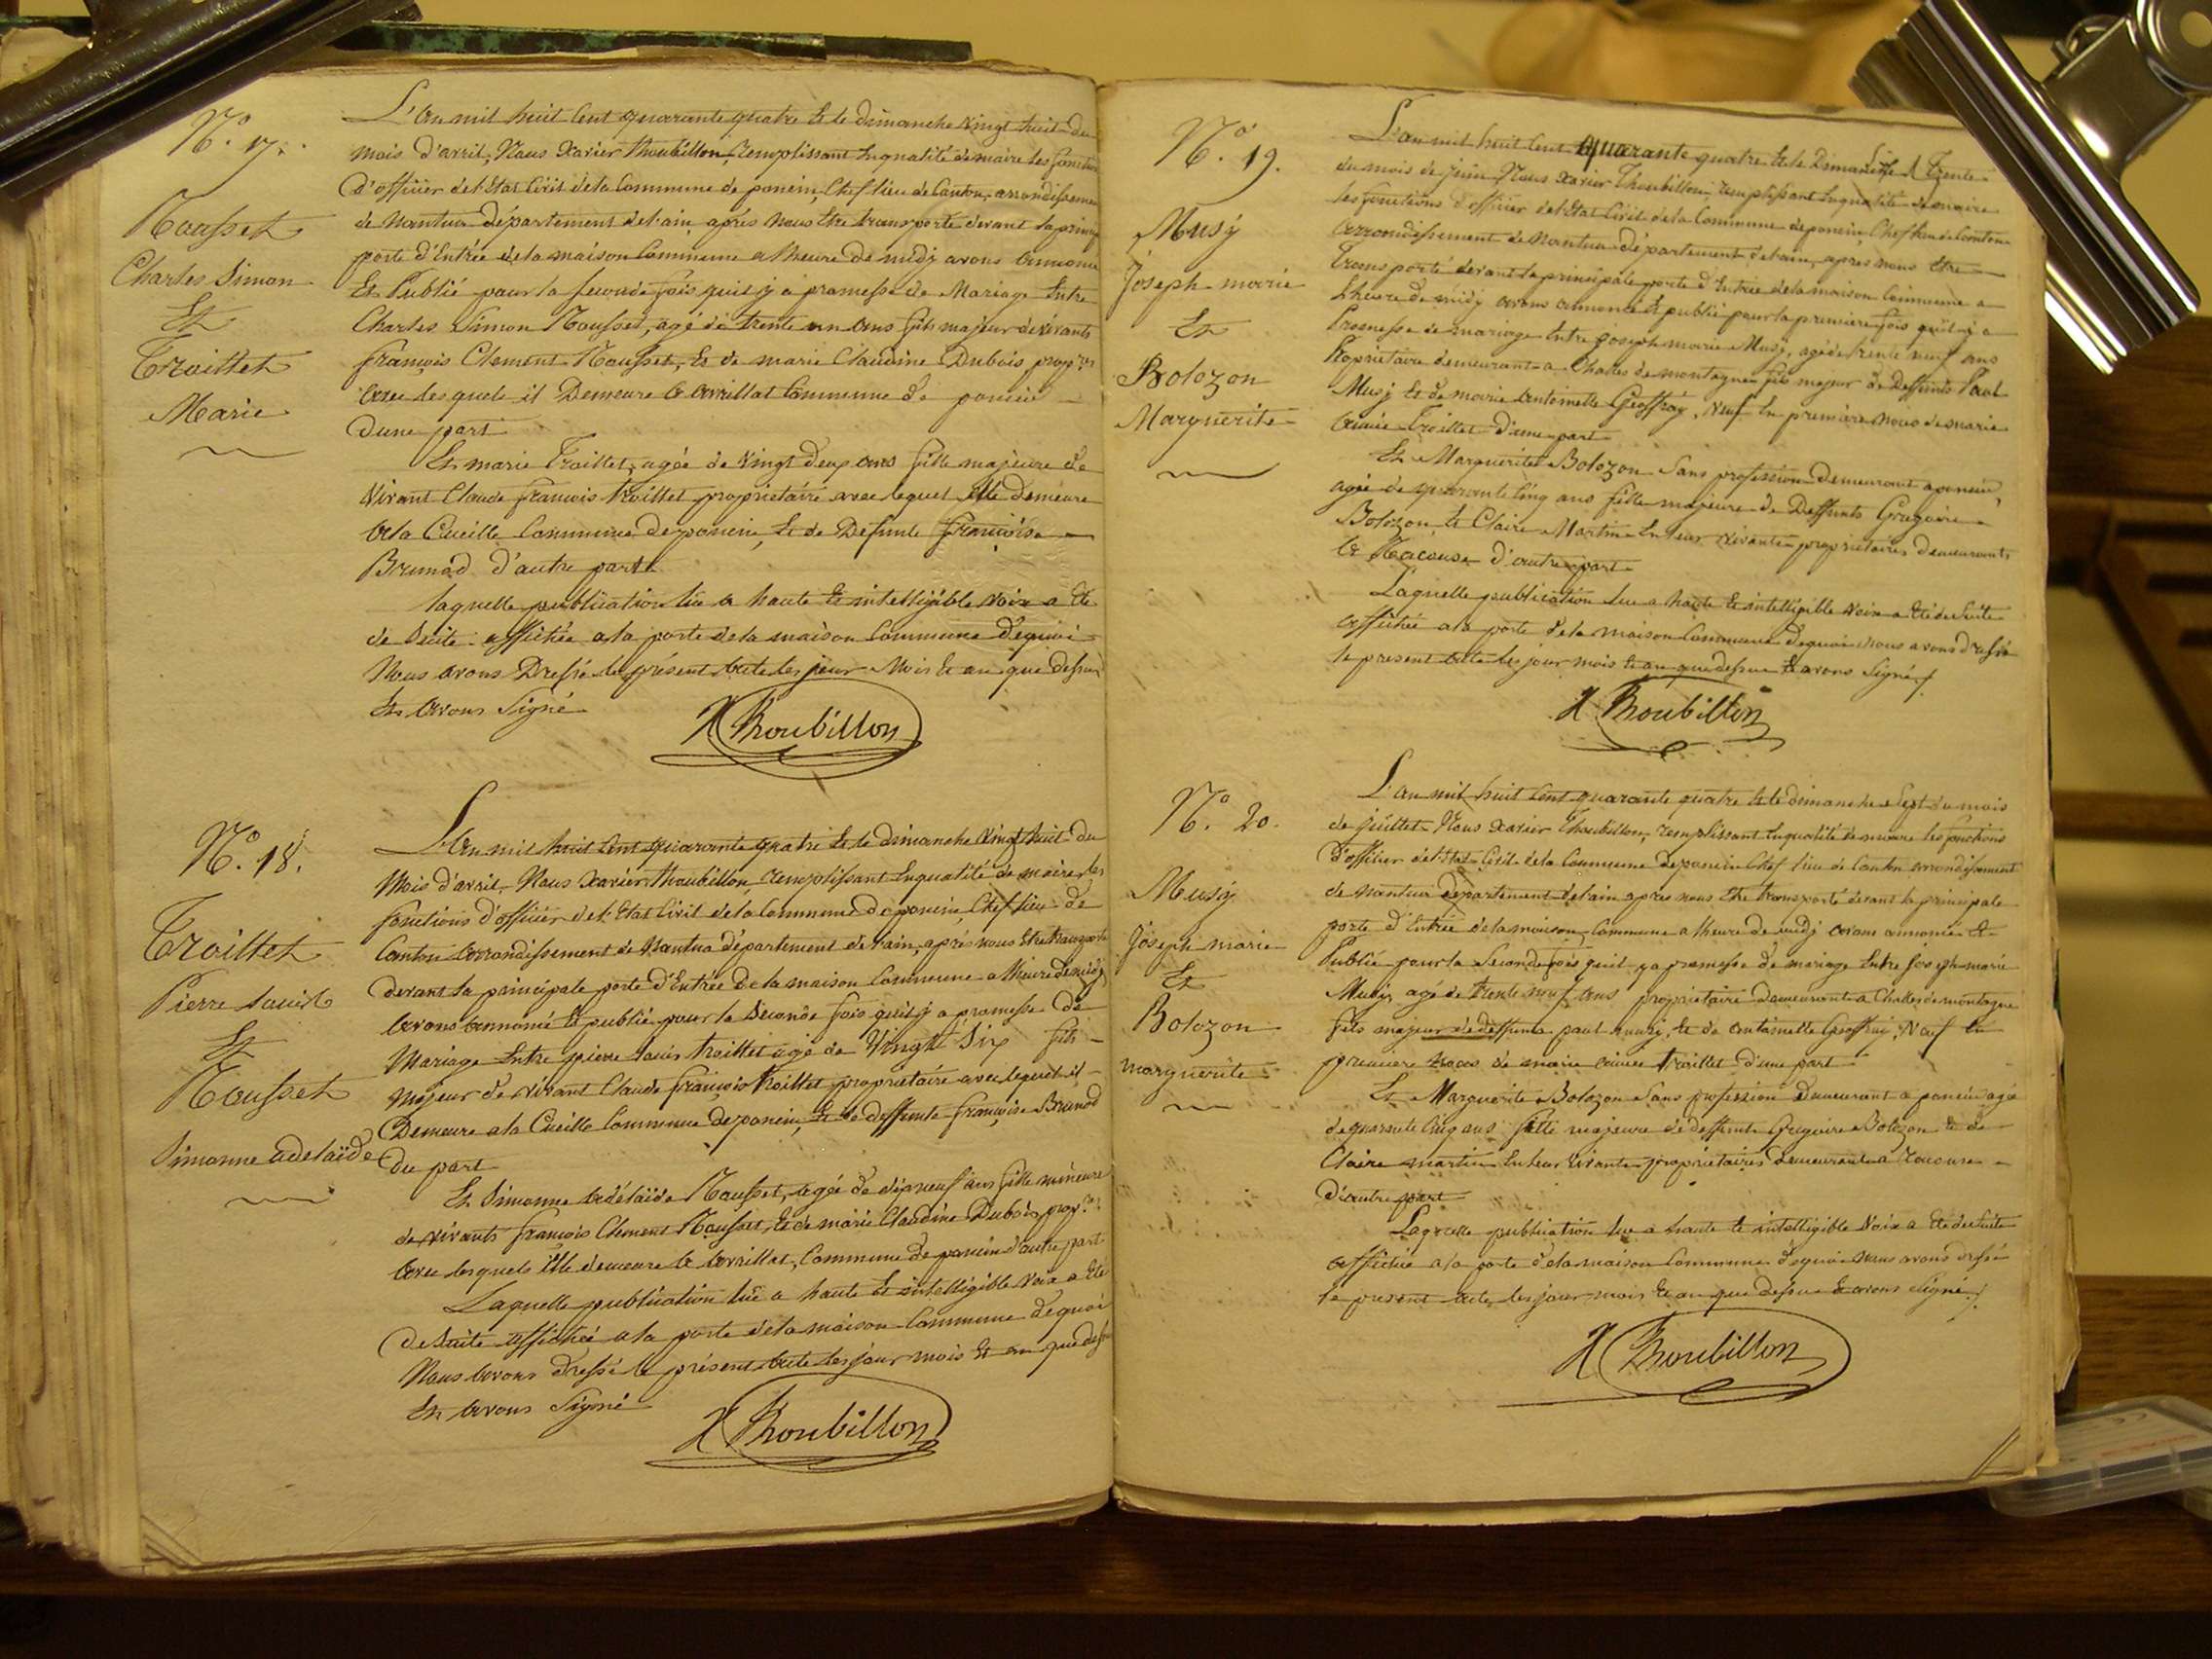 N.° 17.
Rousset
Charles Simon
Et
Troillet
Marie
L'an mil huit Cent quarante quatre Et le dimanche vingt huit du
mois d'avril, Nous Xavier Thoubillon, remplissant En qualité de maire les fonctions
d'officier de l'Etat Civil de la Commune de poncin, Chef lieu de Canton, arrondissement
de Nantua département de l'ain, après nous Etre transporté devant la princip
porte d'Entrée de la maison Commune a l'heure de midj avons annoncé
Et Publié pour la seconde fois qu'il y a promesse de Mariage Entre
Charles Simon Rousset, agé de trente un ans fils majeur de vivants
françois Clement Rousset, Et de marie Claudine Dubois prop.res
avec lesquels il Demeure a avrillat Commune de poncin
d'une part
Et marie Troillet, agée de vingt deux ans fille majeure de
vivant Claude françois troillet propriétaire avec lequel Elle demeure
a la Cueille Commune de poncin, Et de Défunte françoise
Brunod d'autre part
laquelle publication lue a haute Et intelligible voix a Eté
de suite affichée a la porte de la maison Commune de quoi
Nous avons Dressé le présent acte les jour Mois Et an que dessus
Et avons Signé
X Thoubillon
N.° 18.
Troillet
Pierre Louis
Et
Rousset
Simonne adelaïde
L'An mil huit Cent quarante quatre Et le dimanche vingt huit du
Mois d'avril, Nous Xavier Thoubillon, remplissant En qualité de maire les
fonctions d'officier de l'Etat Civil de la Commune de poncin, Chef lieu de
Canton arrondissement de Nantua département de l'ain, après nous Etre transporté
devant la principale porte d'Entrée de la maison Commune a l'heure de midj
avons annoncé Et publié pour la seconde fois qu'il y a promesse de
Mariage Entre pierre Louis troillet agé de Vingt Six fils
majeur de vivant Claude françois troillet propriétaire avec lequel il
Demeure a la Cueille Commune de poncin, Et de deffunte françoise Brunod
du part
Et Simonne adélaïde Rousset, agée de dix neuf ans fille mineure
de vivants françois Clement Rousset, Et de marie Claudine Dubois prop.res
avec lesquels Elle demeure a avrillat, Commune de poncin d'autre part
Laquelle publication lue a haute Et intelligible voix a Eté
de suite affichée a la porte de la maison Commune de quoi
Nous avons dressé le présent acte les jour mois Et an que dessus
Et avons Signé
X Thoubillon
N.° 19.
Musÿ
Joseph marie
Et
Bolozon
Marguerite
L'an mil huit Cent quarante quatre Et le Dimanche Trente
du mois de juin Nous Xavier Thoubillon, remplissant En qualité de maire
les fonctions d'officier de l'Etat Civil de la Commune de poncin Chef lieu de Canton
arrondissement de Nantua département de l'ain, apres nous Etre
transporté devant la principale porte d'Entrée de la maison Commune a
l'heure de midj avons annoncé Et publié pour la premiere fois qu'il y a
Promesse de mariage Entre joseph marie Musÿ, agé de trente neuf ans
Propriétaire demeurant a Challes de montagne fils majeur de Deffunts Paul
Musÿ Et de marie antoinette Geoffray, veuf En premiere noces de marie
aimée Troillet d'une part
Et Marguerite Bolozon Sans profession Demeurant a poncin,
agée de quarante Cinq ans fille majeure de Deffunts Gregoire
Bolozon, Et Claire Martin En leur vivants propriétaires demeurants
a Racouse d'autre part
Laquelle publication lue a haute Et intelligible voix a Eté de Suite
affichée a la porte de la maison Commune de quoi nous avons dressé
le present acte les jour mois Et an que dessus Et avons Signé
X Thoubillon
N.° 20.
Musÿ
joseph marie
Et
Bolozon
marguerite
L'an mil huit Cent quarante quatre Et le dimanche Sept du mois
de juillet Nous Xavier Thoubillon, remplissant En qualité de maire les fonctions
d'officier de l'Etat Civil de la Commune de poncin Chef lieu de Canton arrondissement
de Nantua département de l'ain apres nous Etre transporté devant la principale
porte d'Entrée de la maison, Commune a l'heure de midj avons annoncé Et
Publié pour la Seconde fois qu'il y a promesse de mariage Entre joseph marie
Musÿ agé de trente neuf ans propriétaire Demeurant a Challes de montagne
fils majeur de deffunts paul musÿ, Et de antoinette Geoffray, Veuf En
premiere noces de marie aimée troillet d'une part
Et Marguerite Bolozon Sans profession Demeurant a poncin agée
de quarante Cinq ans fille majeure de deffunts Gregoire Bolozon Et de
Claire martin En leur vivants propriétaires demeurants a racouse
d'autre part
Laquelle publication lue a haute Et intelligible Voix a Eté de Suite
affichée a la porte de la maison Commune de quoi nous avons dressé
le present acte, les jour mois Et an que dessus Et avons Signé
X Thoubillon